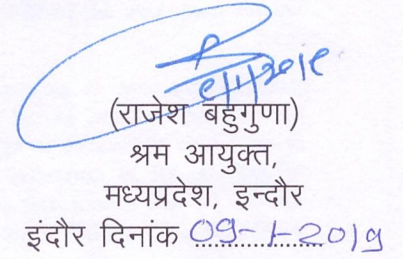 (राजेश बहुगुणा)
श्रम आयुक्त,
मध्यप्रदेश, इन्दौर
इंदौर दिनांक 09-1-2019